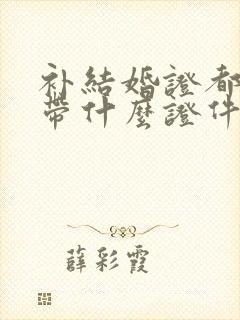 补結婚證都
帶什麼證件
薛彩霞